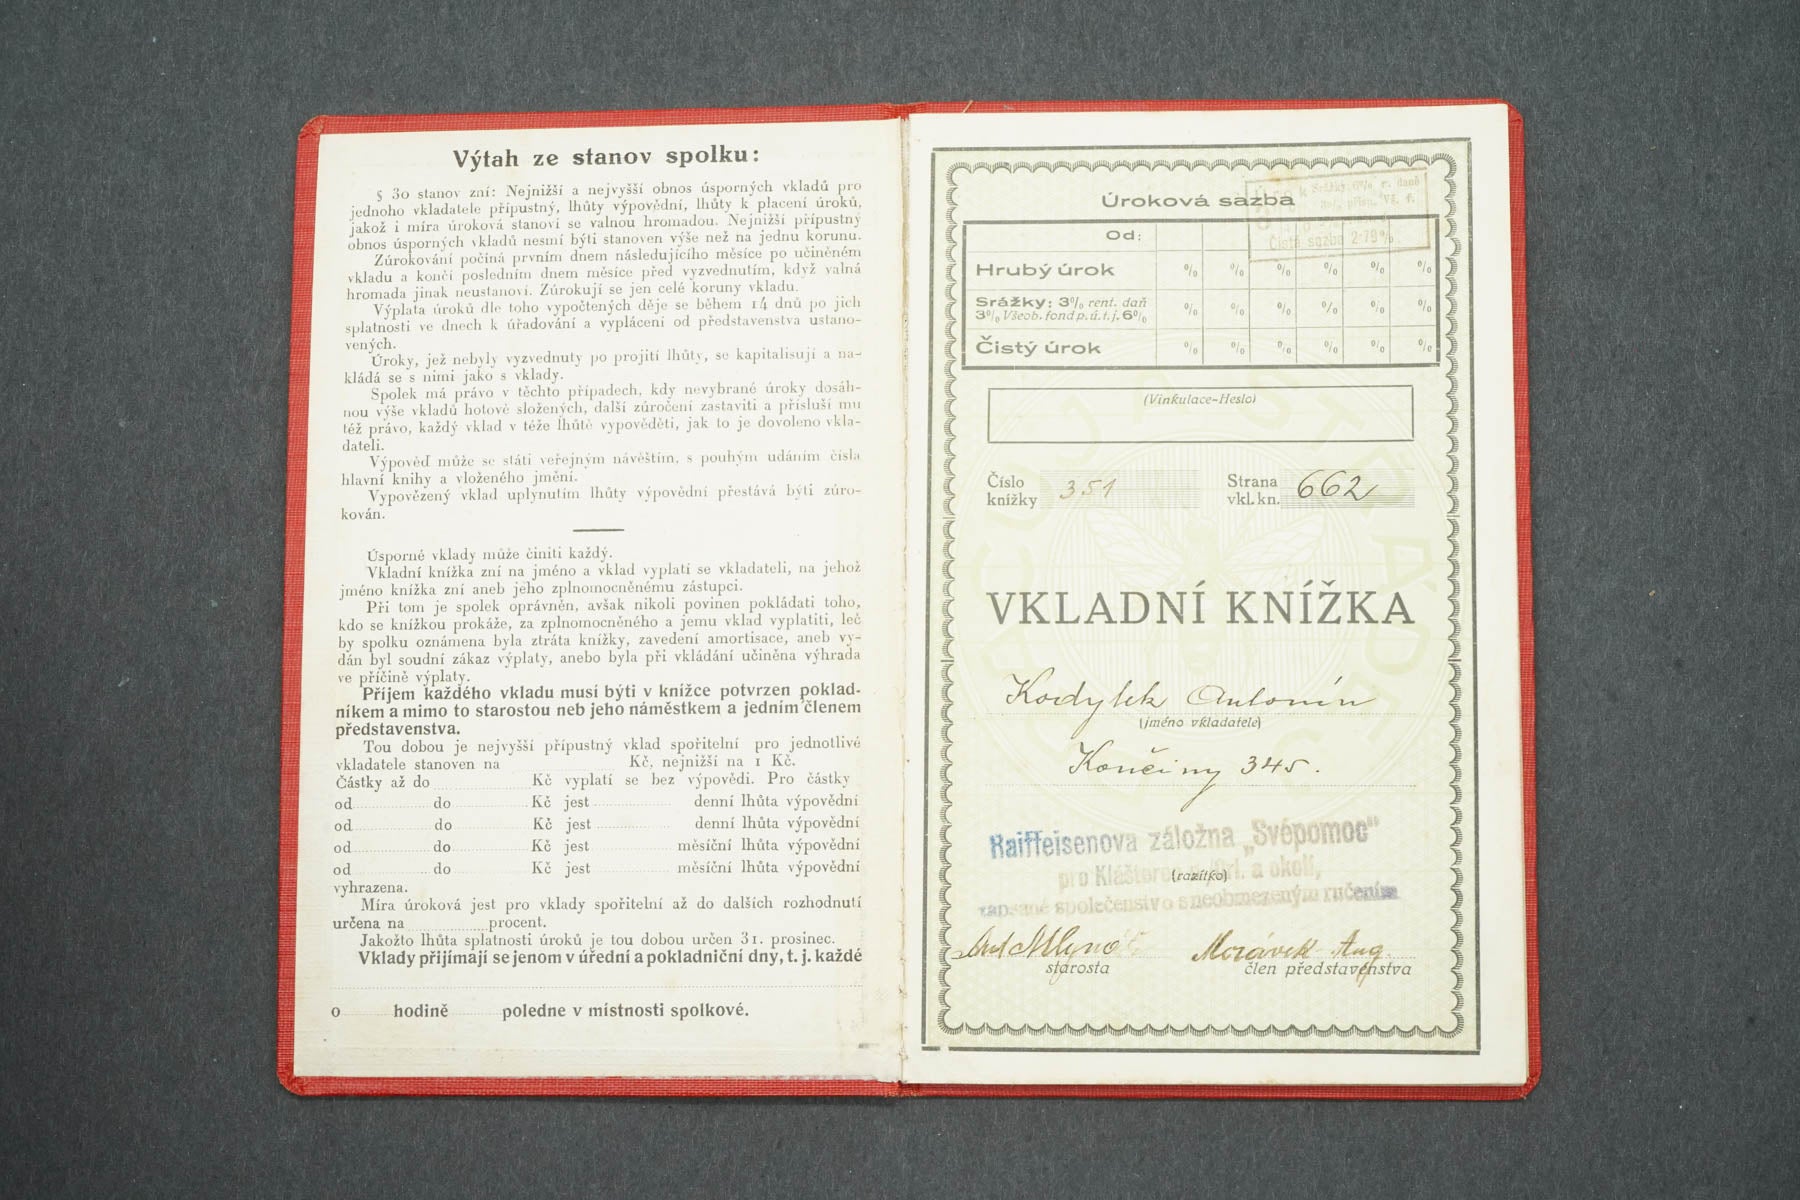 Výtah ze stanov spolku:
§ 30 stanov zní: Nejnižší a nejvyšší obnos úsporných vkladů pro
jednoho vkladatele přípustný, lhůty výpovědní, lhůty k placení úroků,
jakož i míra úroková stanoví se valnou hromadou. Nejnižší přípustný
obnos úsporných vkladů nesmí býti stanoven výše než na jednu korunu.
Zúrokování počíná prvním dnem následujícího měsíce po učiněném
vkladu a končí posledním dnem měsíce před vyzvednutím, když valná
hromada jinak neustanoví. Zúrokují se jen celé koruny vkladu.
Výplata úroků dle toho vypočtených děje se během 14 dnů po jich
splatnosti ve dnech k úřadování a vyplácení od představenstva ustano-
vených.
Úroky, jež nebyly vyzvednuty po projití lhůty, se kapitalisují a na-
kládá se s nimi jako s vklady.
Spolek má právo v těchto případech, kdy nevybrané úroky dosáh-
nou výše vkladů hotově složených, další zúročení zastaviti a přísluší mu
též právo, každý vklad v téže lhůtě vypověděti, jak to je dovoleno vkla-
dateli.
Výpověď může se státi veřejným návěštím, s pouhým udáním čísla
hlavní knihy a vloženého jmění.
Vypovězený vklad uplynutím lhůty výpovědní přestává býti zúro-
kován.
Úsporné vklady může činiti každý.
Vkladní knížka zní na jméno a vklad vyplatí se vkladateli, na jehož
jméno knížka zní aneb jeho zplnomocněnému zástupci.
Při tom je spolek oprávněn, avšak nikoli povinen pokládati toho,
kdo se knížkou prokáže, za zplnomocněného a jemu vklad vyplatiti, leč
by spolku oznámena byla ztráta knížky, zavedení amortisace, aneb vy-
dán byl soudní zákaz výplaty, anebo byla při vkládání učiněna výhrada
ve příčině výplaty.
Příjem každého vkladu musí býti v knížce potvrzen poklad-
níkem a mimo to starostou neb jeho náměstkem a jedním členem
představenstva.
Tou dobou je nejvyšší přípustný vklad spořitelní pro jednotlivé
vkladatele stanoven na Kč, nejnižší na 1 Kč.
Částky až do Kč vyplatí se bez výpovědi. Pro částky
od do Kč jest denní lhůta výpovědní
od do Kč jest denní lhůta výpovědní
od do Kč jest měsíční lhůta výpovědní
od do Kč jest měsíční lhůta výpovědní
vyhrazena.
Míra úroková jest pro vklady spořitelní až do dalších rozhodnutí
určena na procent.
Jakožto lhůta splatnosti úroků je tou dobou určen 31. prosinec.
Vklady přijímají se jenom v úřední a pokladniční dny, t. j. každé
o hodině poledne v místnosti spolkové.
Úroková sazba
Srážky 6% r. daně
Vš. f.
Čistá sazba 2·79%
Od:
Hrubý úrok % % % % % %
Srážky: 3% rent. daň
3% Všeob. fond p. ú. t. j. 6% % % % % % %
Čistý úrok % % % % % %
(Vinkulace-Heslo)
Číslo
knížky 351
Strana
vkl. kn. 662
VKLADNÍ KNÍŽKA
Kodytek Antonín
(jméno vkladatele)
Končiny 345.
Raiffeisenova záložna „Svépomoc"
pro Klášterec n/Orl. a okolí,
(razítko)
zapsané společenstvo s neobmezeným ručením
Ant Mlynář
starosta
Morávek Aug.
člen představenstva